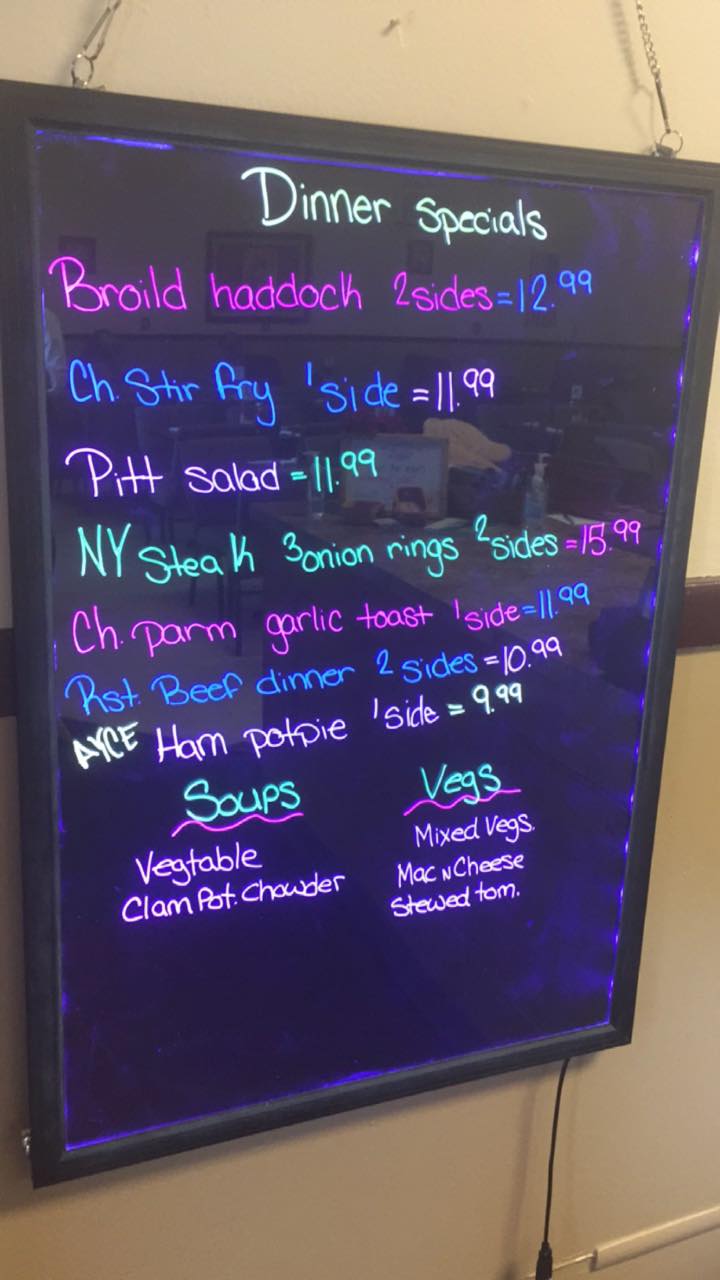 Dinner specials
Broild haddock 2 sides = 12.99
Ch. Stir fry 1 side = 11.99
Pitt salad = 11.99
NY Steak 3 onion rings 2 sides = 15.99
Ch. parm garlic toast 1 side = 11.99
Rst. Beef dinner 2 sides = 10.99
AYCE Ham potpie 1 side = 9.99
Soups
Vegtable
Clam Pot. Chowder
Vegs
Mixed Vegs.
Mac N Cheese
Stewed tom.